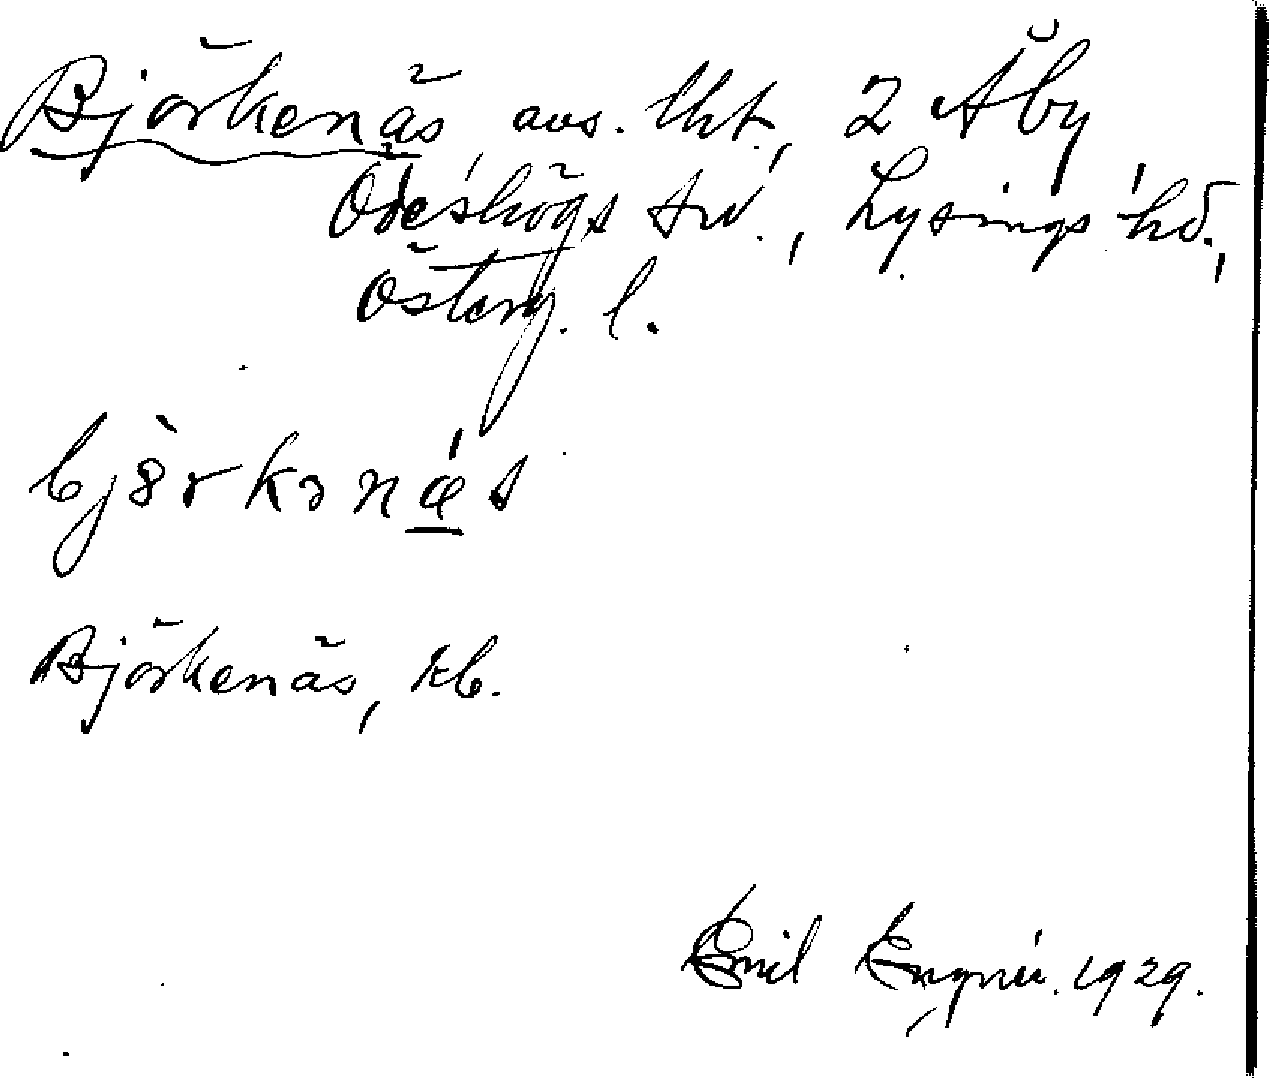 Björkenäs, avs. lht., 2 Åby
Ödeshögs sn., Lysings hd.,
Österg. l.
Björkenäs, kb.
Emil 1929.